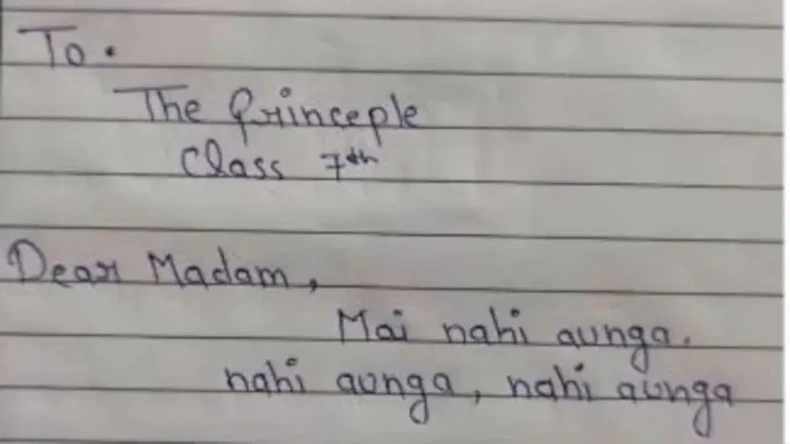 To.
The Princeple
Class 7th
Dear Madam,
Mai nahi aunga.
nahi aunga, nahi aunga